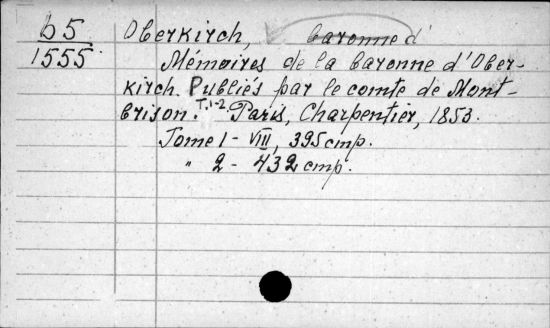 b5
1555
Oberkirch, baronne d'
Mémoires de la baronne d'Ober-
kirch. Publiés par le comte de Mont-
brison. T.1-2. Paris, Charpentier, 1853.
Tome 1 - VIII, 395 стр.
" 2 - 432 стр.